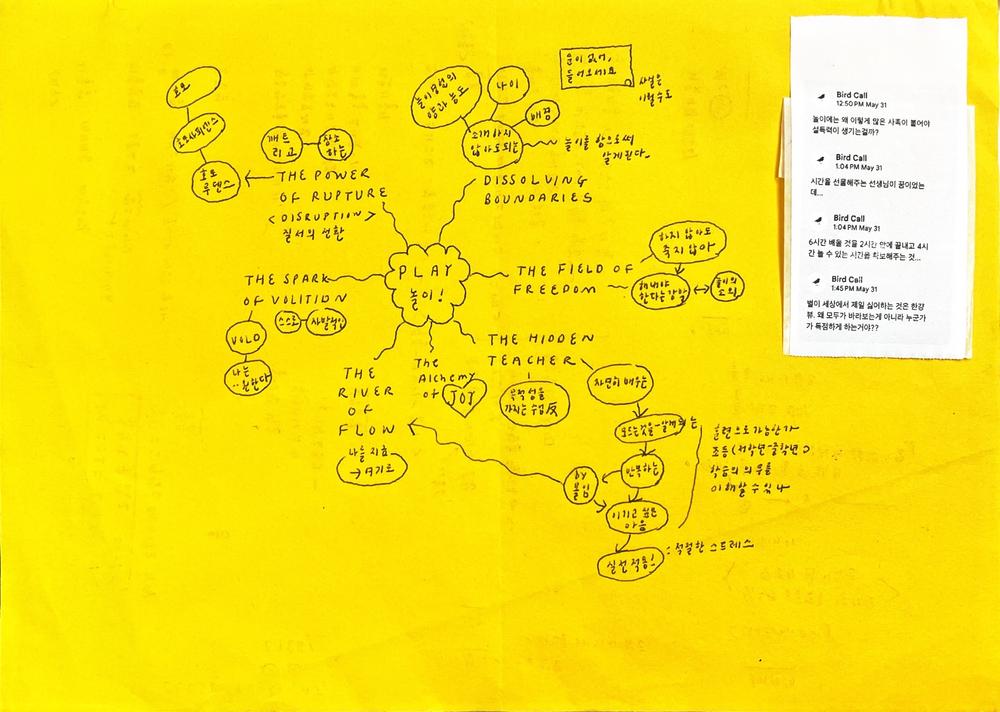 호모
호모사피엔스
호모
루덴스
깨트
리고
창조
하는
THE POWER
OF RUPTURE
<DISRUPTION>
질서의 전환
놀이경험의
양과 농도
나이
배경
소개하지
않아도되는
놀이를 함으로써
알게된다.
문이 없어,
들어오세요
사실은
이럴수도
DISSOLVING
BOUNDARIES
PLAY
놀이!
THE SPARK
OF VOLITION
스스로
자발적인
VOLO
나는
..원한다
THE FIELD OF
FREEDOM
하지 않아도
죽지 않아
해내야
한다는강박
놀이의
소외
THE HIDDEN
TEACHER
목적성을
가지는 수업 反
자연히 배우는
모르는것을-알게되는
반복하는
by
몰입
이기고 싶은
마음
실전적용!
: 적절한 스트레스
훈련으로 가능한가
초등(저학년-중학년)
학습의 의무를
이해할 수 있나
The
Alchemy
of JOY
THE
RIVER
OF
FLOW
나를 지휘
Bird Call
12:50 PM May 31
놀이에는 왜 이렇게 많은 사족이 붙어야
설득력이 생기는걸까?
Bird Call
1:04 PM May 31
시간을 선물해주는 선생님이 꿈이었는
데...
Bird Call
1:04 PM May 31
6시간 배울 것을 2시간 안에 끝내고 4시
간 놀 수 있는 시간을 확보해주는 것...
Bird Call
1:45 PM May 31
별이 세상에서 제일 싫어하는 것은 한강
뷰. 왜 모두가 바라보는게 아니라 누군가
가 독점하게 하는거야??